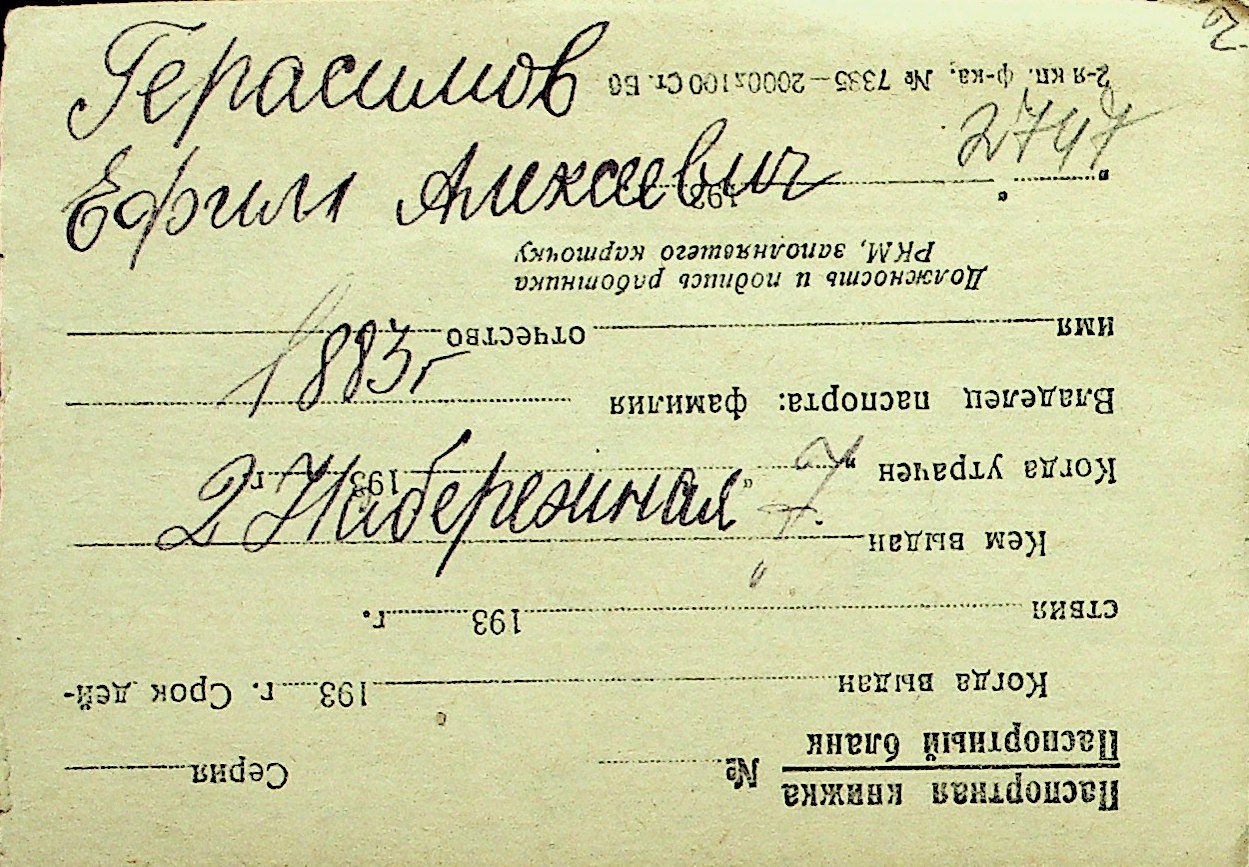 Герасимов
Ефим Алексеевич
1883 г
2 Набережная 7
2747
Паспортная книжка
Паспортный бланк
№ Серия
Когда выдан 193 г. Срок дей-
ствия 193 г.
Кем выдан
Когда утрачен " " 193 г.
Владелец паспорта: фамилия
имя отчество
Должность и подпись работника
РКМ, заполнявшего карточку
" " 193
2-я кп. ф-ка, № 7385—2000х100 Ст. Б6
2